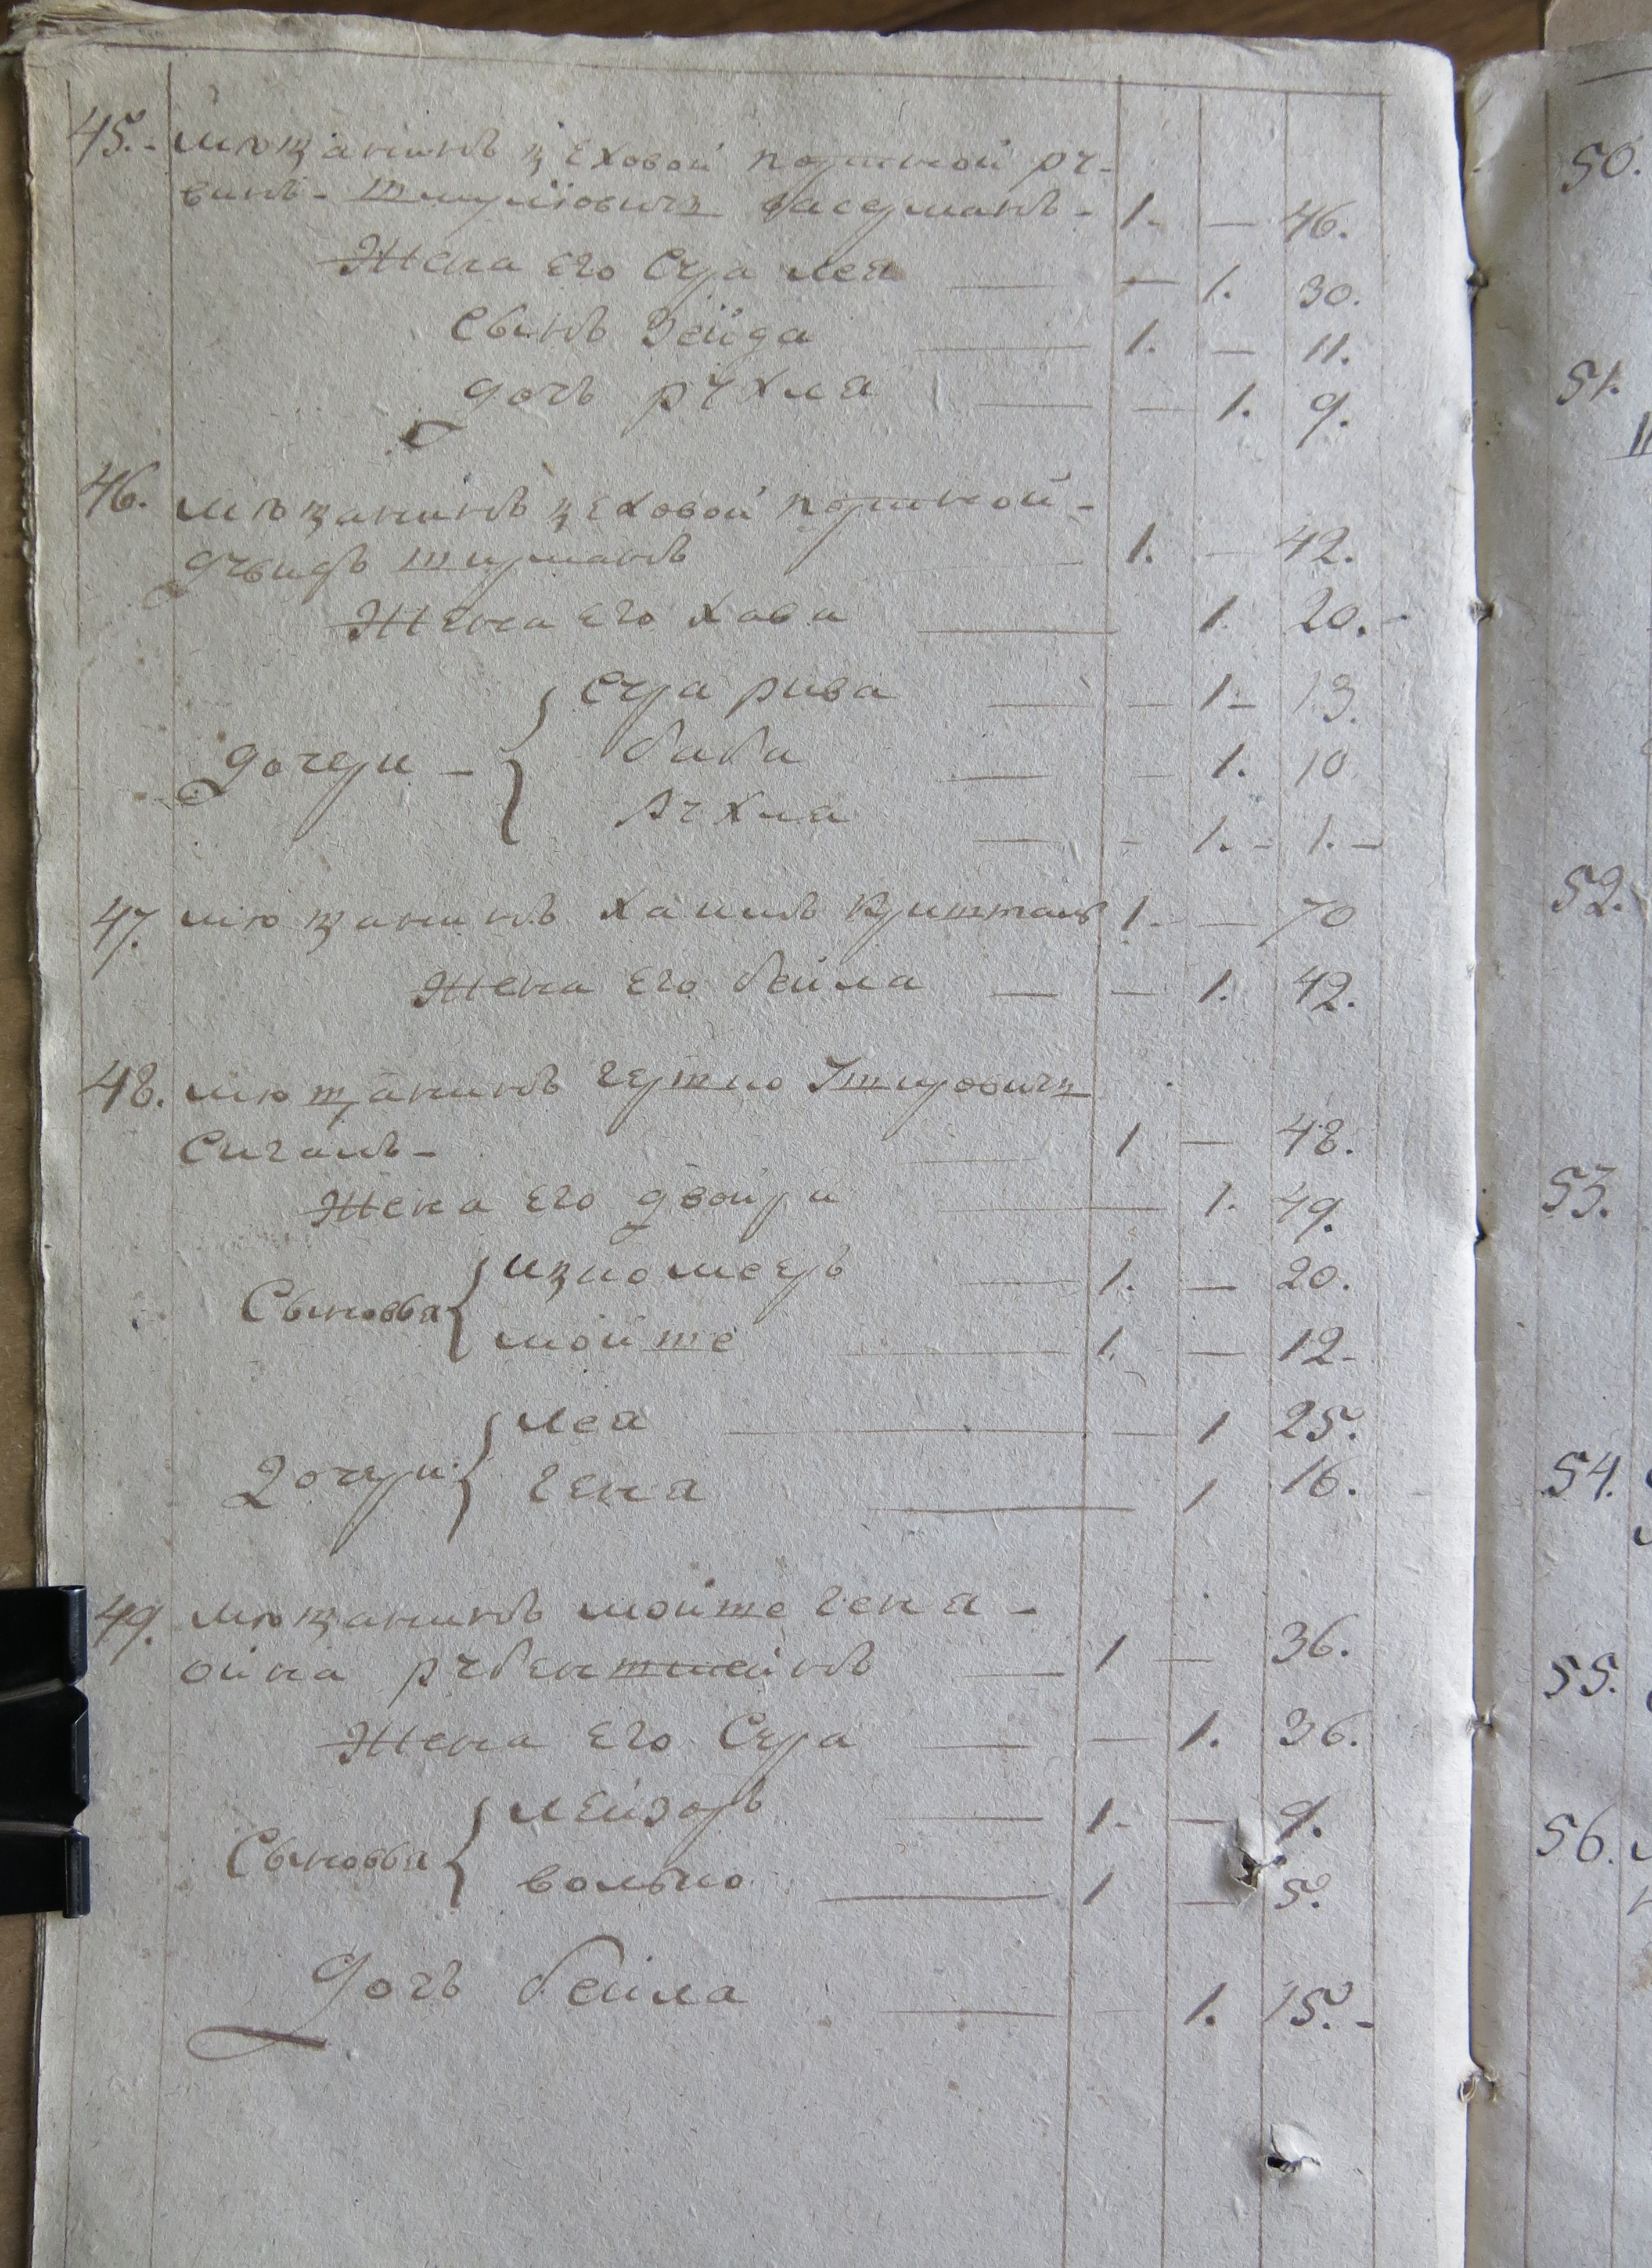 45. мѣщанинъ цеховой портной ру-
винъ Шмулiовичъ васерманъ 1. — 46.
Жена его Сура лея — 1. 30.
Сынъ Зейда 1. — 11.
дочь рухля — 1. 9.
46. мѣщанинъ цеховой портной
давидъ шерманъ 1. — 42.
Жена его хава 1. 20.
дочери { Сура рива — 1. 13.
баба — 1. 10
рухля — 1. 1.
47. мѣщанинъ хаимъ 1. — 70
Жена его бейла — 1. 42.
48. мѣщанинъ гершко
1 — 48.
Жена его двойра — 1. 49.
Сыновья { ицко мееръ 1. — 20.
мойше 1. — 12
Дочери { лея — 1 25.
гена 1 16.
49. мѣщанинъ мойше гена
рубенштейнъ 1 — 36.
Жена его Сура — 1. 36.
Сыновья { лейзоръ 1. — 9.
волько 1 — 5.
Дочь бейла — 1. 15.
50.
51.
52.
53.
54.
55.
56.